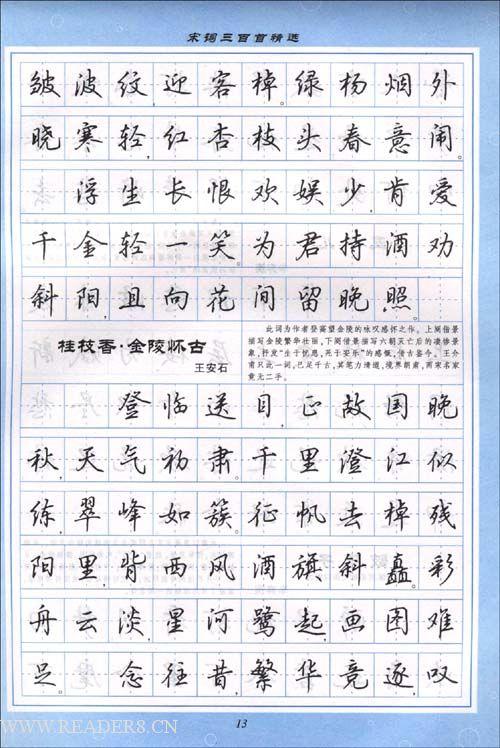 宋词三百首精选
皱波纹迎客棹。绿杨烟外
晓寒轻,红杏枝头春意闹。
浮生长恨欢娱少,肯爱
千金轻一笑。为君持酒劝
斜阳,且向花间留晚照。
桂枝香·金陵怀古
王安石
此词为作者登高望金陵的咏叹感怀之作。上阕借景
描写金陵繁华壮丽,下阕借景描写六朝亡后的凄惨景
象,抒发“生于忧患,死于安乐”的感慨,借古鉴今。王介
甫只此一词,已足千古,其笔力清遒,境界朗肃,两宋名家
竟无二手。
登临送目,正故国晚
秋,天气初肃。千里澄江似
练,翠峰如簇。征帆去棹残
阳里,背西风酒旗斜矗。彩
舟云淡,星河鹭起,画图难
足。念往昔,繁华竞逐,叹
WWW.READER8.CN
13